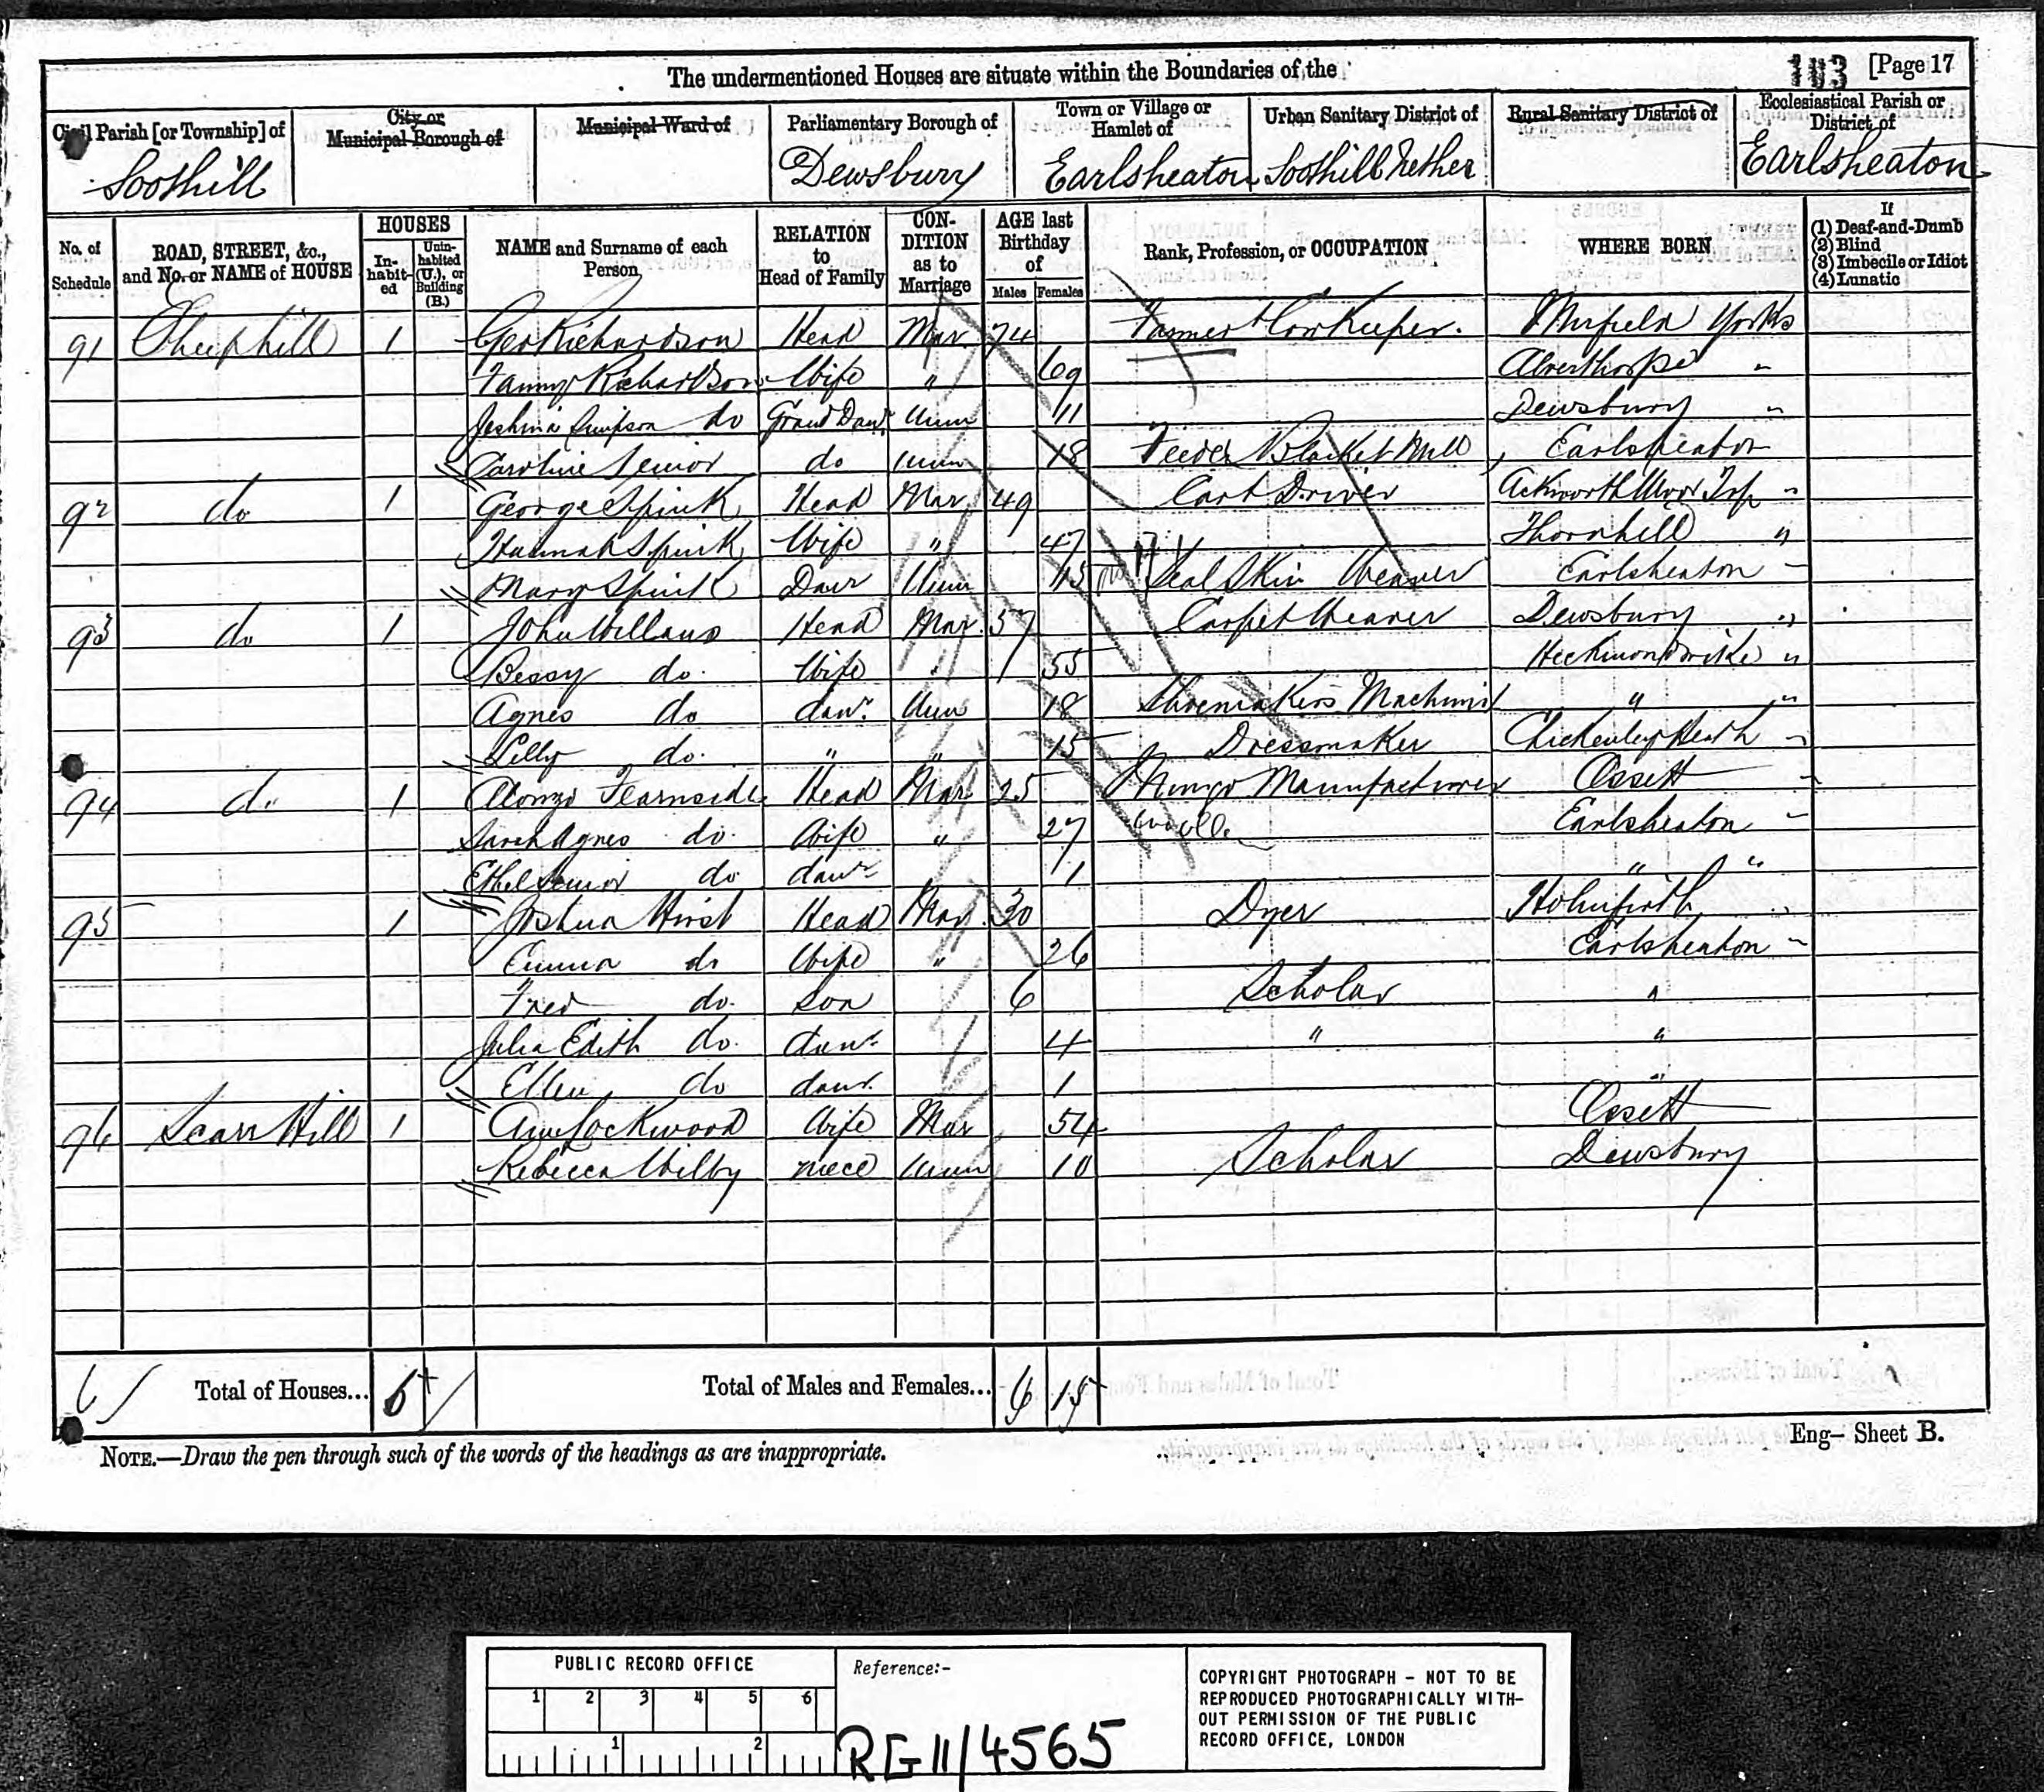 103 [Page 17
The undermentioned Houses are situate within the Boundaries of the
Civil Parish [or Township] of
Soothill
City or Municipal Borough of
Municipal Ward of
Parliamentary Borough of
Dewsbury
Town or Village or Hamlet of
Earlsheaton
Urban Sanitary District of
Soothill Nether
Rural Sanitary District of
Ecclesiastical Parish or District of
Earlsheaton
No. of Schedule
ROAD, STREET, &c., and No. or NAME of HOUSE
HOUSES
In-habit-ed
Unin-habited (U.), or Building (B.)
NAME and Surname of each Person
RELATION to Head of Family
CON-DITION as to Marriage
AGE last Birthday of
Males Females
Rank, Profession, or OCCUPATION
WHERE BORN
If
(1) Deaf-and-Dumb
(2) Blind
(3) Imbecile or Idiot
(4) Lunatic
91 Sheephill 1 Geo Richardson Head Mar 74 Farmer & Cow Keeper. Mirfield Yorks
Fanny Richardson Wife " 69 Alverthorpe "
Simpson do Grand Daur Unm 11 Dewsbury "
Caroline Senior do Unm 18 Feeder Blanket Mill Earlsheaton
92 do 1 George Spink Head Mar 49 Cart Driver Ackworth Moor Top "
Hannah Spink Wife " 47 Thornhill "
Mary Spink Daur Unm 15 Seal Skin Weaver Earlsheaton "
93 do 1 John Willans Head Mar 57 Carpet Weaver Dewsbury "
Bessy do. Wife " 55 Heckmondwike "
Agnes do daur. Unm 18 Shoemakers Machinist " "
Lilly do. " " 15 Dressmaker Chickenley Heath "
94 do 1 Alonzo Fearnside Head Mar 25 Mungo Manufacturer Ossett "
Sarah Agnes do. Wife " 27 Earlsheaton "
Ethel Senior do daur 1 " "
95 1 Joshua Hirst Head Mar 30 Dyer Holmfirth "
Emma do Wife " 26 Earlsheaton "
Fred do. son 6 Scholar "
Julia Edith do. daur. 4 " "
Ellen do daur. 1 "
96 Scarr Hill 1 Ann Lockwood Wife Mar 54 Ossett
Rebecca Wilby niece Unm 10 Scholar Dewsbury
6 Total of Houses... 6 Total of Males and Females... 6 15
NOTE.—Draw the pen through such of the words of the headings as are inappropriate.
Eng– Sheet B.
PUBLIC RECORD OFFICE
1 2 3 4 5 6
1 2
Reference:-
RG 11/4565
COPYRIGHT PHOTOGRAPH – NOT TO BE
REPRODUCED PHOTOGRAPHICALLY WITH-
OUT PERMISSION OF THE PUBLIC
RECORD OFFICE, LONDON